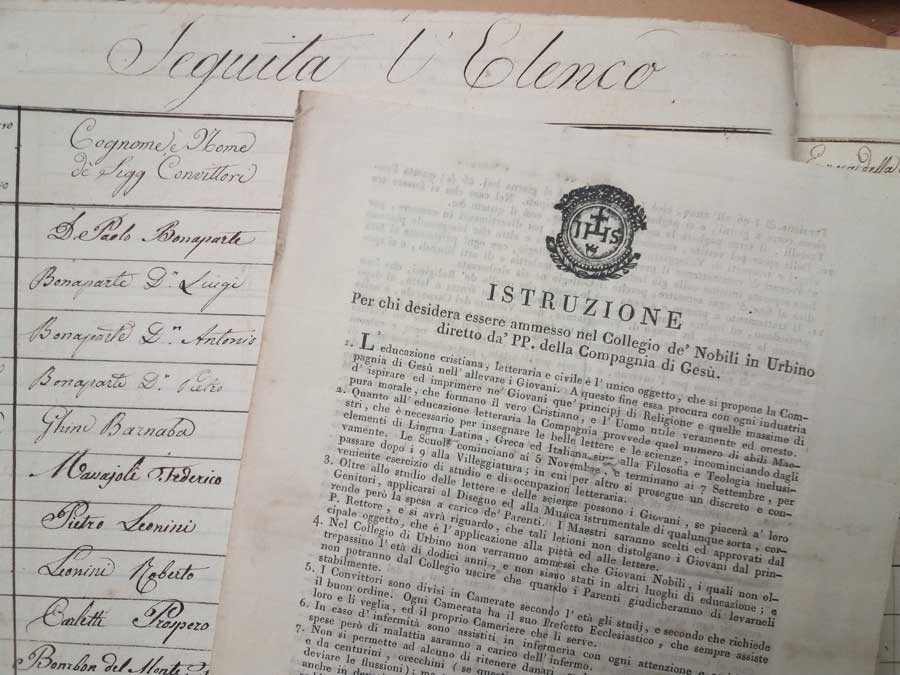 Seguita l'Elenco
Cognome e Nome
de' Sigg Convittori
De Paolo Bonaparte
Bonaparte Dn. Luigi
Bonaparte Dn. Antonio
Bonaparte Dn. Pietro
Ghini Barnaba
Mavajoli Federico
Pietro Leonini
Leonini Roberto
Carletti Prospero
Bombon del Monte
della
IHS
ISTRUZIONE
Per chi desidera essere ammesso nel Collegio de' Nobili in Urbino
diretto da' PP. della Compagnia di Gesù.
1. L' educazione cristiana, letteraria e civile è l' unico oggetto, che si propone la Com-
pagnia di Gesù nell' allevare i Giovani. A questo fine essa procura con ogni industria
d' ispirare ed imprimere ne' Giovani que' principj di Religione e quelle massime di
pura morale, che formano il vero Cristiano, e l' Uomo utile veramente ed onesto.
2. Quanto all' educazione letteraria la Compagnia provvede quel numero di abili Mae-
stri, che è necessario per insegnare le belle lettere e le scienze, incominciando dagli
elementi di Lingua Latina, Greca ed Italiana sino alla Filosofia e Teologia inclusi-
vamente. Le Scuole cominciano ai 5 Novembre, e terminano ai 7 Settembre, per
passare dopo i 9 alla Villeggiatura; in cui per altro si prosegue un discreto e con-
veniente esercizio di studio e di occupazion letteraria.
3. Oltre allo studio delle lettere e delle scienze possono i Giovani, se piacerà a' loro
Genitori, applicarsi al Disegno ed alla Musica istrumentale di qualunque sorta, cor-
rendo però la spesa a carico de' Parenti. I Maestri saranno scelti ed approvati dal
P. Rettore, e si avrà riguardo, che tali lezioni non distolgano i Giovani dal prin-
cipale oggetto, che è l' applicazione alla pietà ed alle lettere.
4. Nel Collegio di Urbino non verranno ammessi che Giovani Nobili, i quali non ol-
trepassino l' età di dodici anni, e non siano stati in altri luoghi di educazione; e
non potranno dal Collegio uscire che quando i Parenti giudicheranno di levarneli
stabilmente.
5. I Convittori sono divisi in Camerate secondo l' età gli studj, e secondo che richiede
il buon ordine. Ogni Camerata ha il suo Prefetto Ecclesiastico, che sempre assiste
loro e li veglia, ed il proprio Cameriere che li serve.
6. In caso d' infermità sono assistiti in infermeria con ogni attenzione e
spese però di malattia saranno a carico dell' infermo.
7. Non si permette ad alcuno di ritenere danari
e da centurini, orecchini (se
deviare le flussioni);
anche in